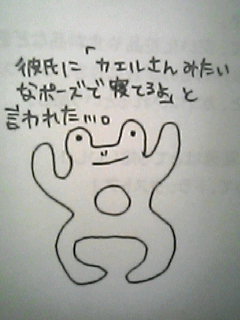 彼氏に「カエルさんみたい
なポーズで寝てるよ」と
言われた…。